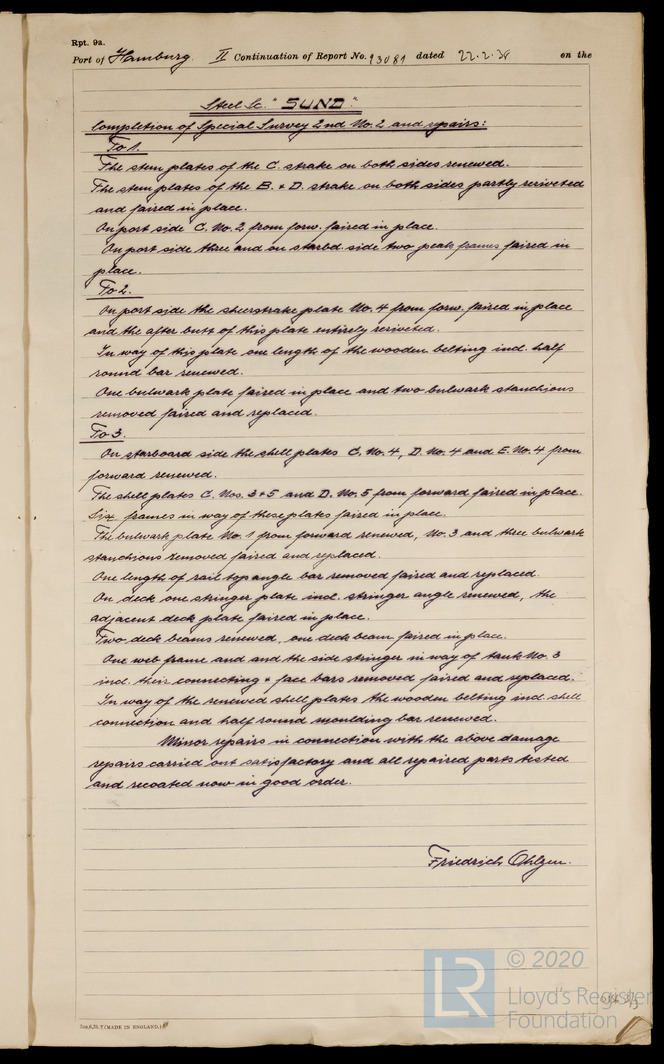 Rpt. 9a.
Port of Hamburg. II Continuation of Report No. 13081 dated 22.2.38 on the
Steel Sc. "SUND."
Completion of Special Survey 2nd No. 2 and repairs:
To 1.
The stem plates of the C. strake on both sides renewed.
The stem plates of the B. & D. strake on both sides partly reriveted
and faired in place.
On port side C. No. 2 from forw. faired in place.
On port side three and on starbd. side two peak frames faired in
place.
To 2.
On port side the sheerstrake plate No. 4 from forw. faired in place
and the after butt of this plate entirely reriveted.
In way of this plate one length of the wooden belting incl. half
round bar renewed.
One bulwark plate faired in place and two bulwark stanchions
removed faired and replaced.
To 3.
On starboard side the shell plates C. No. 4, D. No. 4 and E. No. 4 from
forward renewed.
The shell plates C. Nos. 3 & 5 and D. No. 5 from forward faired in place.
Six frames in way of these plates faired in place.
The bulwark plate No. 1 from forward renewed, No. 3 and three bulwark
stanchions removed faired and replaced.
One length of rail top angle bar removed faired and replaced.
On deck one stringer plate incl. stringer angle renewed, the
adjacent deck plate faired in place.
Two deck beams renewed, one deck beam faired in place.
One web frame and and the side stringer in way of tank No. 3
incl. their connecting & face bars removed faired and replaced.
In way of the renewed shell plates the wooden belting incl. shell
connection and half round moulding bar renewed.
Minor repairs in connection with the above damage
repairs carried out satisfactory and all repaired parts tested
and recoated now in good order.
Friedrich Ohlsen.
LR © 2020
Lloyd's Register
Foundation
(MADE IN ENGLAND.)